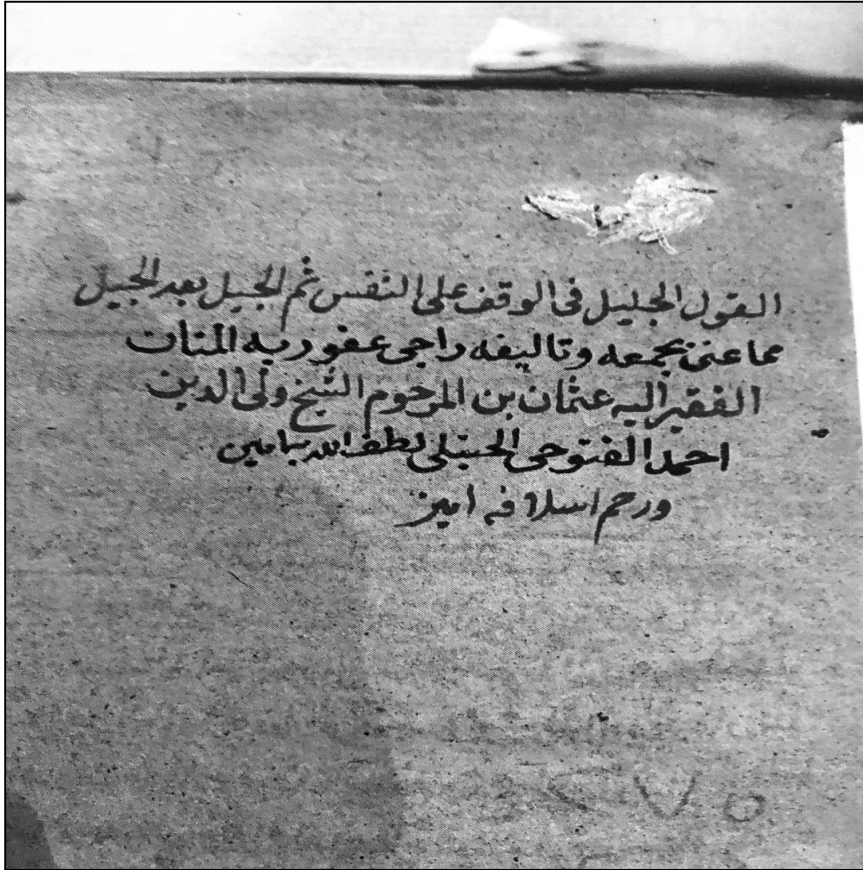 القول الجليل فى الوقف على النفس ثم الجيل بعد الجيل
مما عنى بجمعه وتاليفه راجى عفو ربه المنان
الفقير اليه عثمان بن المرحوم الشيخ ولى الدين
احمد الفتوحى الحنبلى لطف الله به امين
ورحم اسلافه امين
٢٧٥